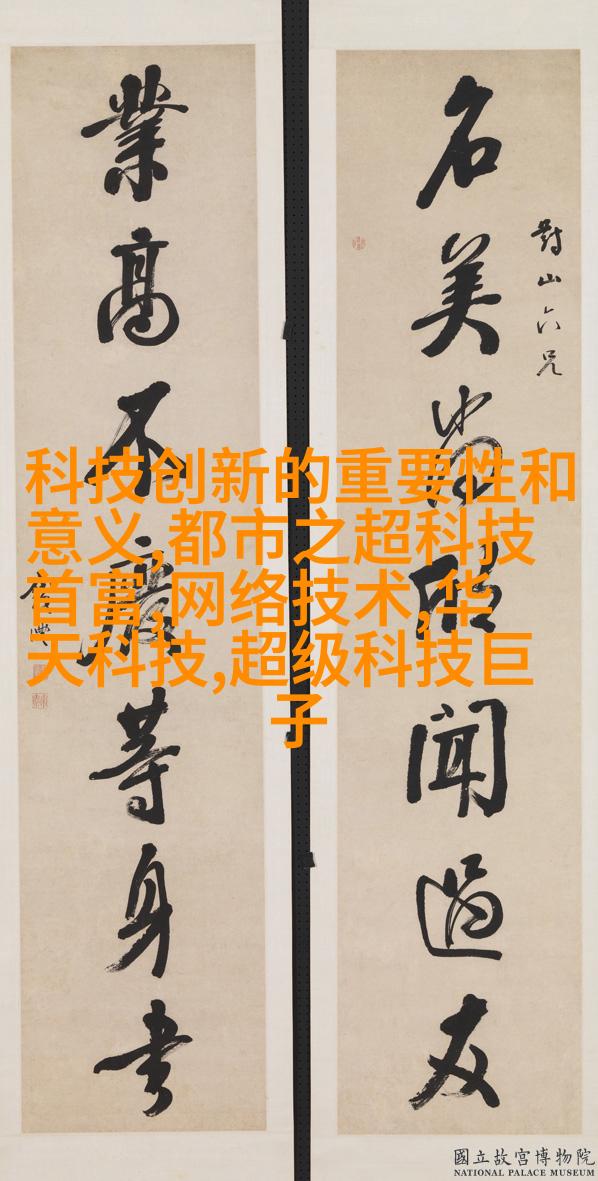 名美尚
聞過友
對山六兄
業高不廢等身書
科技创新的重要性和
意义,都市之超科技
首富,网络技术,华
天科技,超级科技巨
子
國立故宮博物院
NATIONAL PALACE MUSEUM